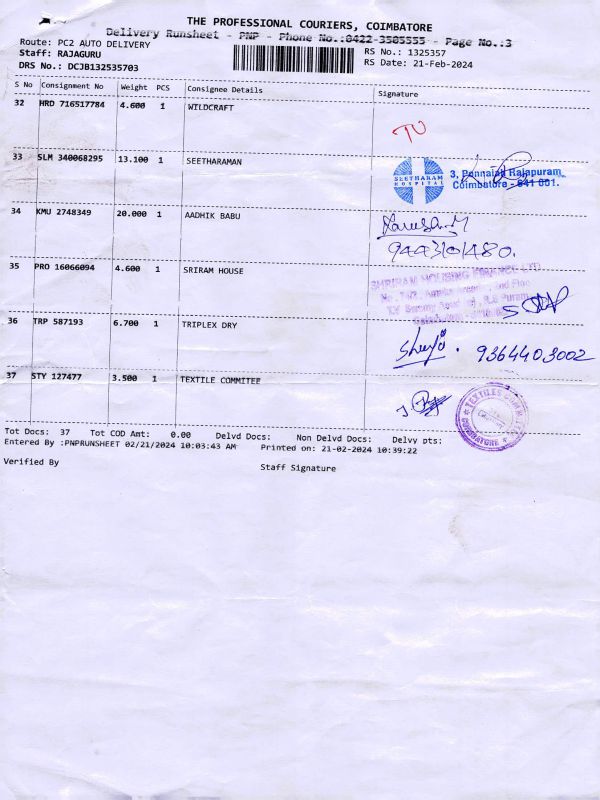 THE PROFESSIONAL COURIERS, COIMBATORE
Delivery Runsheet - PNP - Phone No.:0422-3505555 - Page No.:3
Route: PC2 AUTO DELIVERY
Staff: RAJAGURU
RS No.: 1325357
DRS No.: DCJB132535703
RS Date: 21-Feb-2024
S No Consignment No Weight PCS Consignee Details Signature
32 HRD 716517784 4.600 1 WILDCRAFT
33 SLM 340068295 13.100 1 SEETHARAMAN
SEETHARAM
HOSPITAL
3, Ponnaiah Rajapuram,
Coimbatore - 641 001.
34 KMU 2748349 20.000 1 AADHIK BABU
9443101480.
35 PRO 16066094 4.600 1 SRIRAM HOUSE
SHRIRAM HOUSING FINANCE LTD
36 TRP 587193 6.700 1 TRIPLEX DRY
9364403002
37 STY 127477 3.500 1 TEXTILE COMMITEE
TEXTILES COMMITTEE
COIMBATORE
Tot Docs: 37 Tot COD Amt: 0.00 Delvd Docs: Non Delvd Docs: Delvy pts:
Entered By :PNPRUNSHEET 02/21/2024 10:03:43 AM Printed on: 21-02-2024 10:39:22
Verified By
Staff Signature